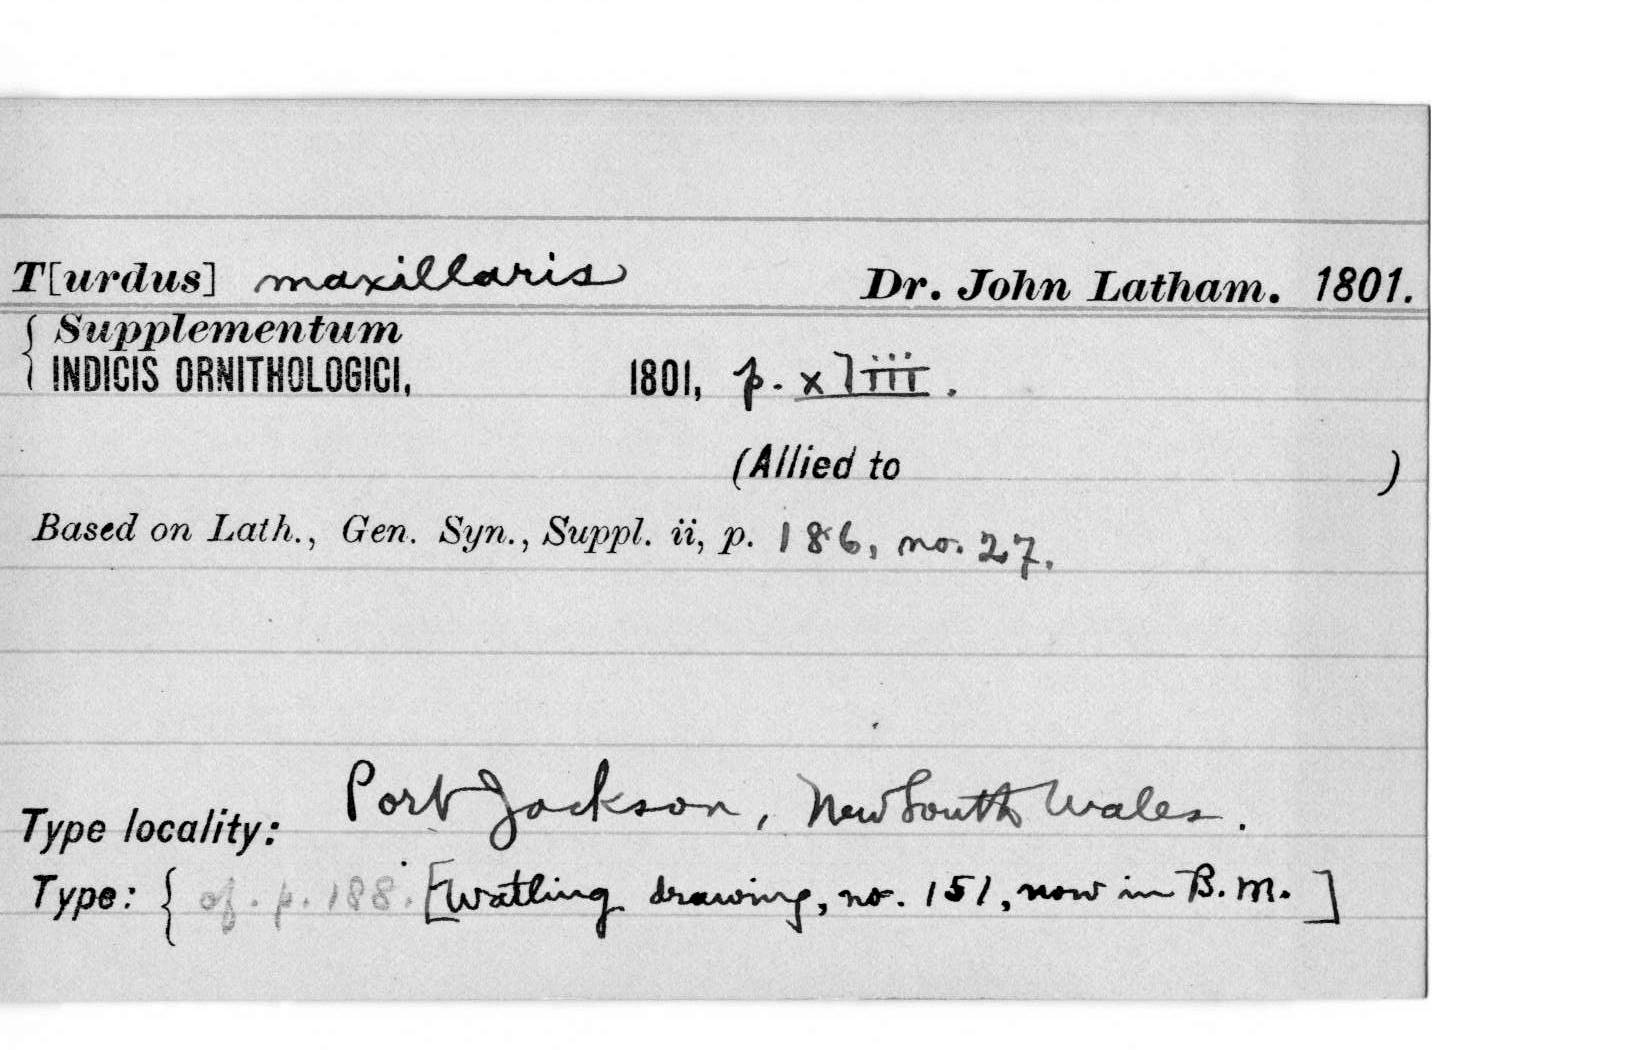 T[urdus] maxillaris Dr. John Latham. 1801.
{ Supplementum
INDICIS ORNITHOLOGICI, 1801, p. xliii.
(Allied to )
Based on Lath., Gen. Syn., Suppl. ii, p. 186, no. 27.
Type locality: Port Jackson, New South Wales.
Type: { cf. p. 188. [Watling drawing, no. 151, now in B.M.]